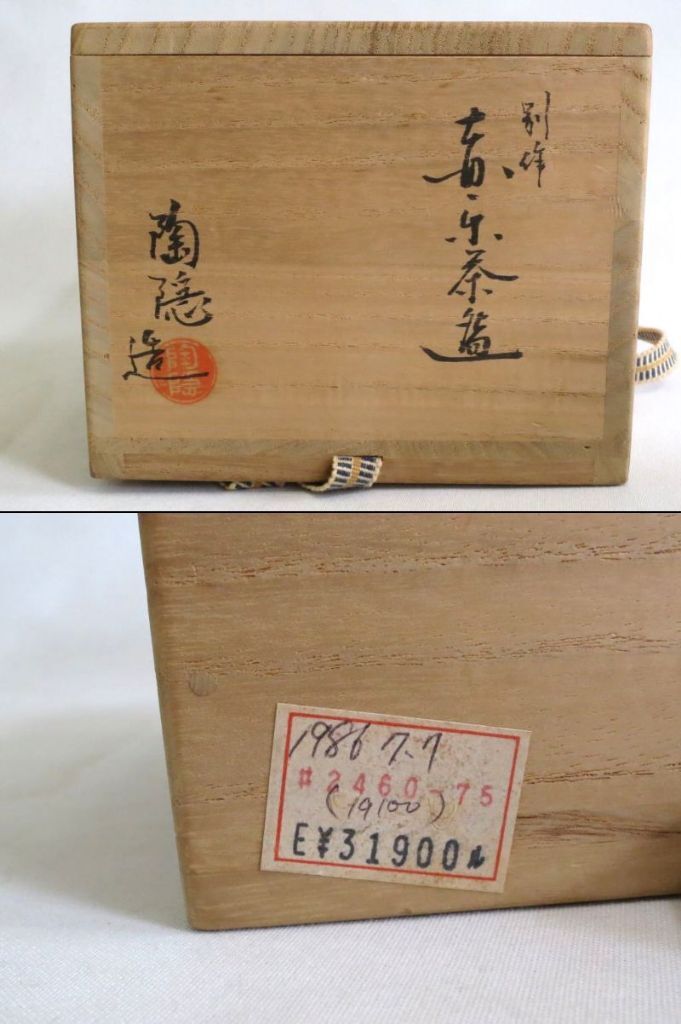 別作
真楽茶盌
陶隠
造
陶隠
1986 7.7
#2460-75
(19100)
E¥31900